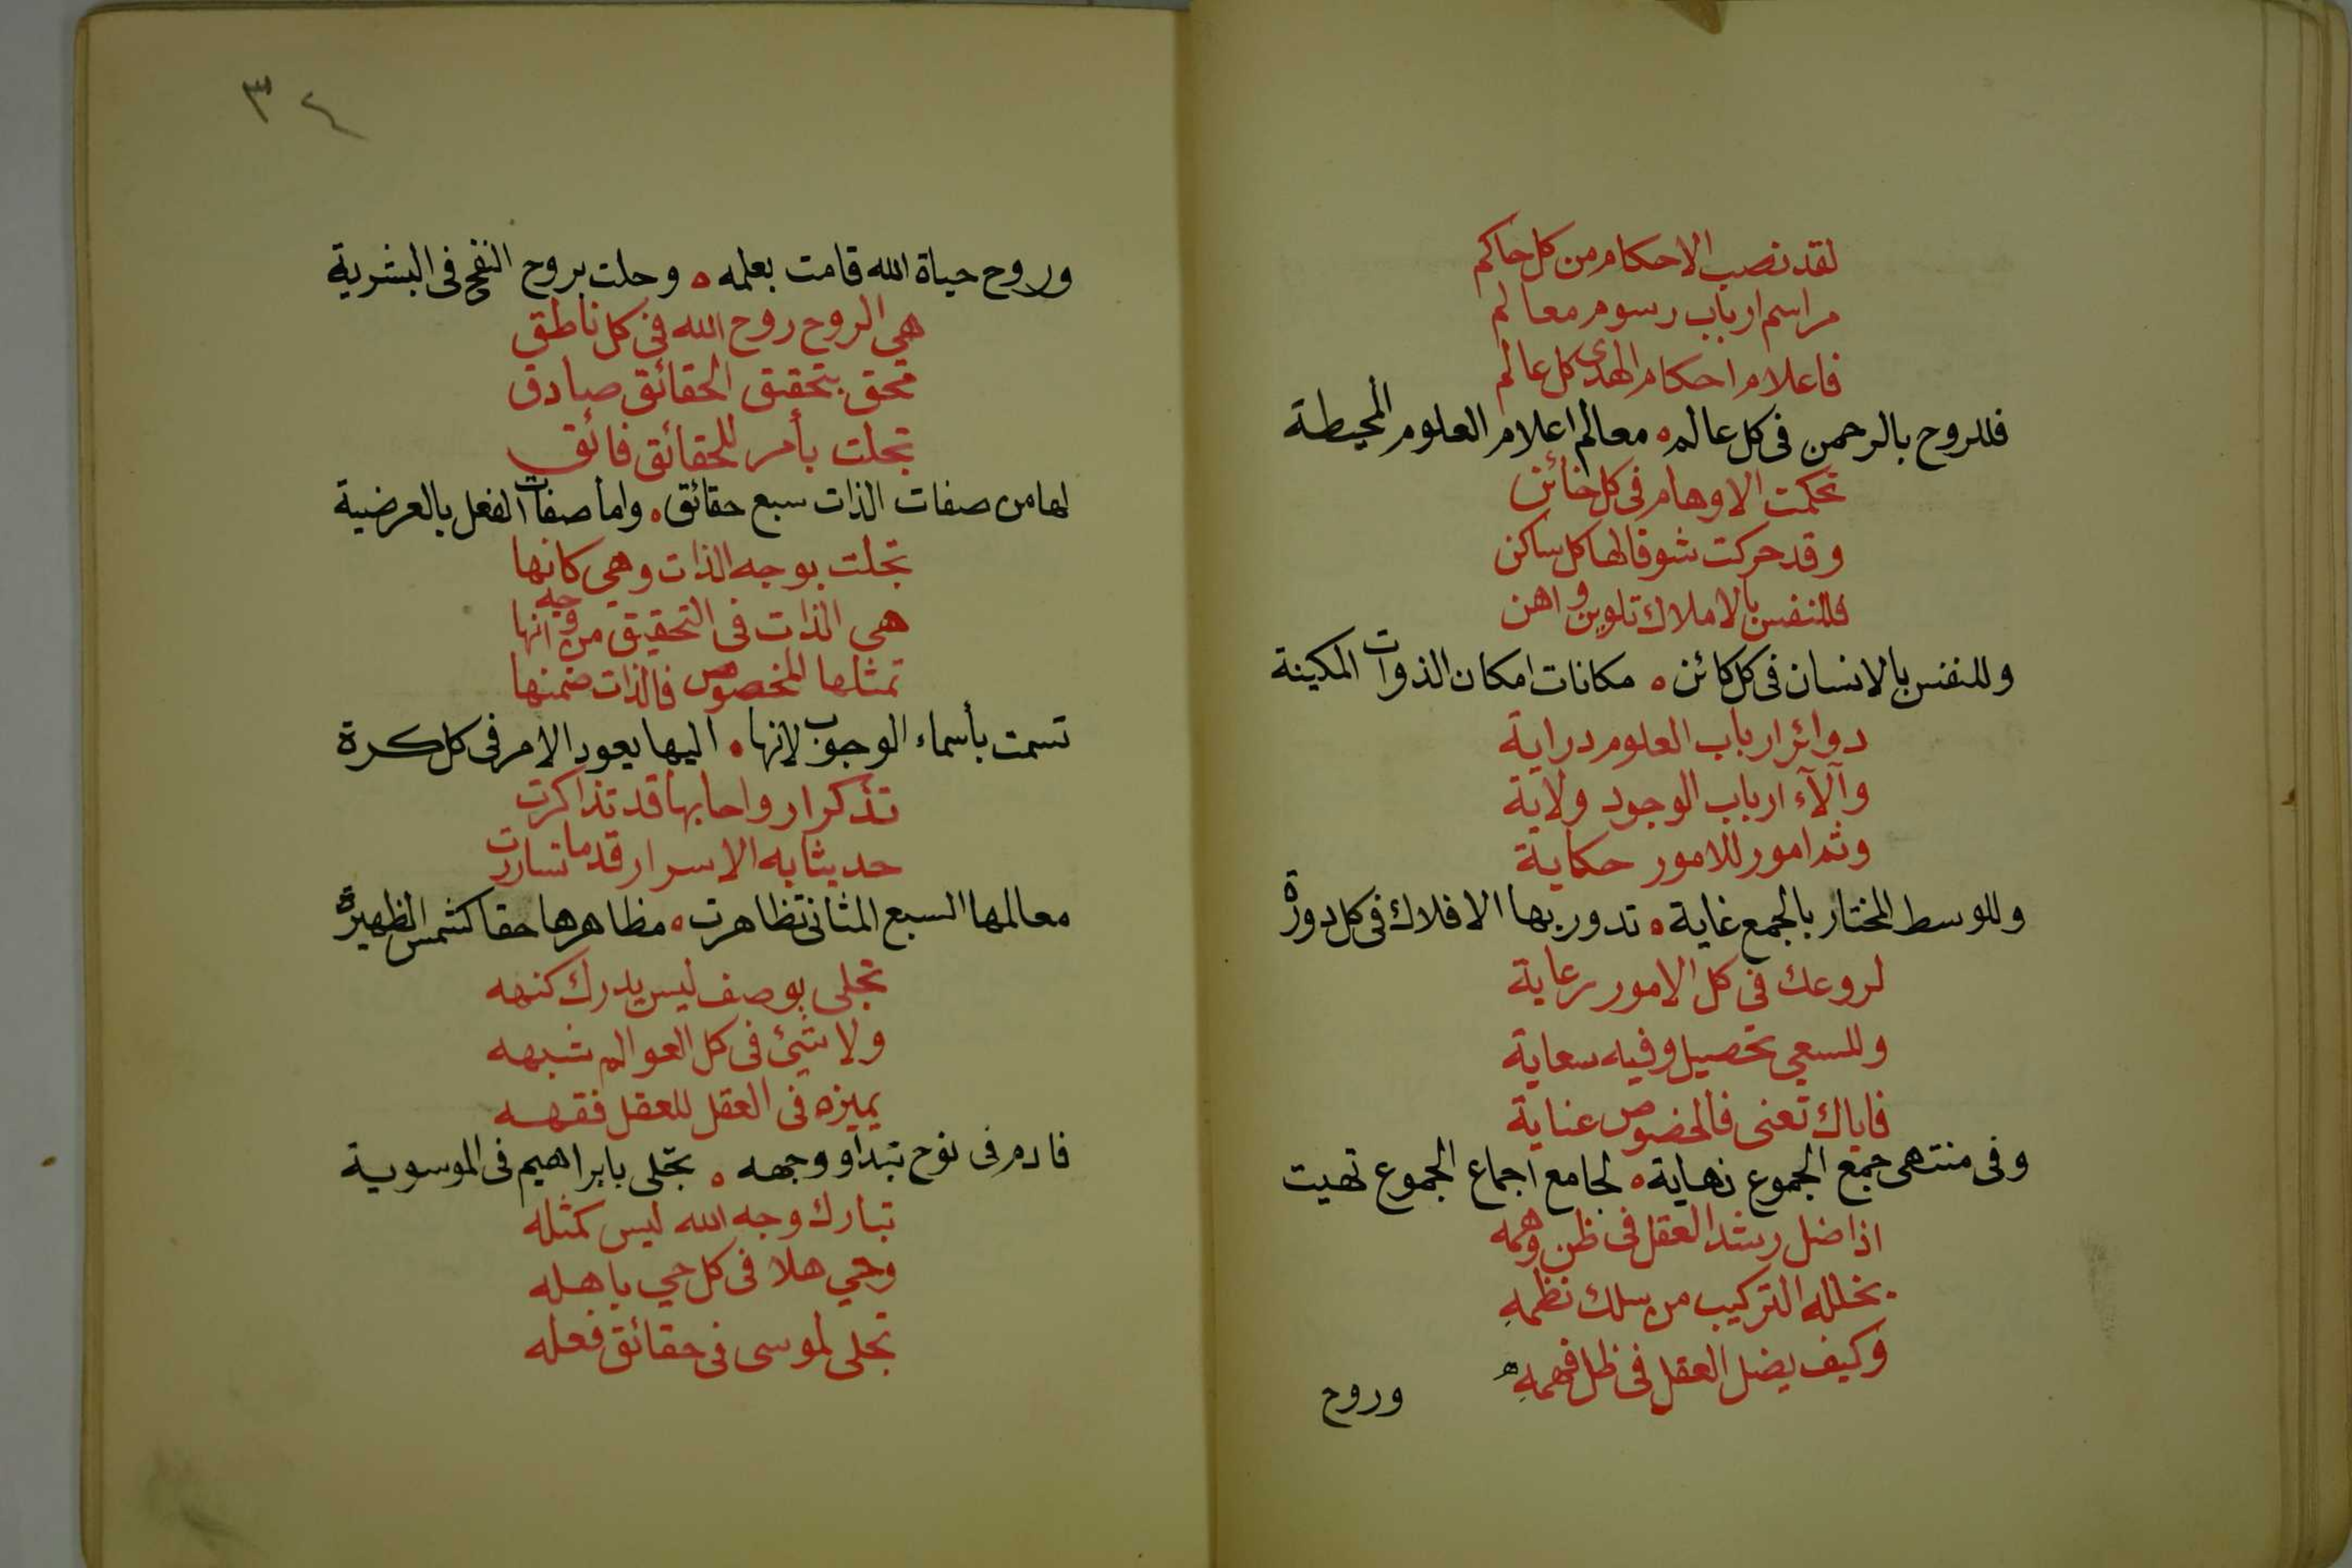 لقد نصب الاحكام من كل حاكم
مراسم ارباب رسوم معالم
فاعلام احكام الهدى كل عالم
فللروح بالرحمن فى كل عالم ه معالم اعلام العلوم المحيطة
تحكمت الاوهام فى كل خائن
وقد حركت شوقا لها كل ساكن
فللنفس بالاملاك تلوين واهن
وللنفس بالانسان فى كل كائن ه مكانات امكان الذوات المكينة
دوائر ارباب العلوم دراية
وآلآء ارباب الوجود ولاية
وثم امور للامور حكاية
وللوسط المختار بالجمع غاية ه تدور بها الافلاك فى كل دورة
لروعك فى كل الامور رعاية
وللسعي تحصيل وفيه سعاية
فاياك تعنى فالخضوص عناية
وفى منتهى جمع الجموع نهاية ه لجامع اجماع الجموع تهيت
اذا ضل رشد العقل فى ظن وهمه
بخلله التركيب من سلك نظمهِ
وكيف يضل العقل فى ظل فهمهِ
وروح
٣٤
وروح حياة الله قامت بعلمه ه وحلت بروح النفخ فى البشرية
هي الروح روح الله فى كل ناطق
محق بتحقيق الحقائق صادق
تجلت بأمر للحقائق فائق
لها من صفات الذات سبع حقائق ه واما صفات الفعل بالعرضية
تجلت بوجه الذات وهي كانها
هي الذات فى التحقيق من وجه انها
تمثلها المخصوص فالذات ضمنها
تسمت بأسماء الوجوب لانها ه اليها يعود الامر فى كل كرة
تذكر ارواحا بها قد تذاكرت
حديثا به الاسرار قدما تساررت
معالمها السبع المثانى تظاهرت ه مظاهرها حقا كشمس الظهيرة
تجلى بوصف ليس يدرك كنهه
ولا شئ فى كل العوالم شبهه
يميزه فى العقل للعقل فقهه
فادم فى نوح تبداو وجهه ه تجلى بابراهيم فى الموسوية
تبارك وجه الله ليس كمثله
وحي هلا فى كل حي باهله
تجلى لموسى فى حقائق فعله